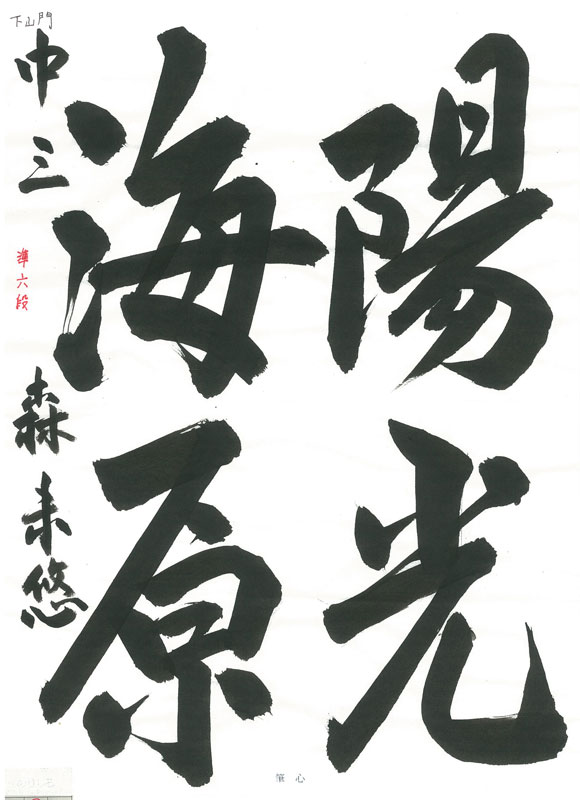 陽光
海原
下山門
中三
準六段
森未悠
筆心